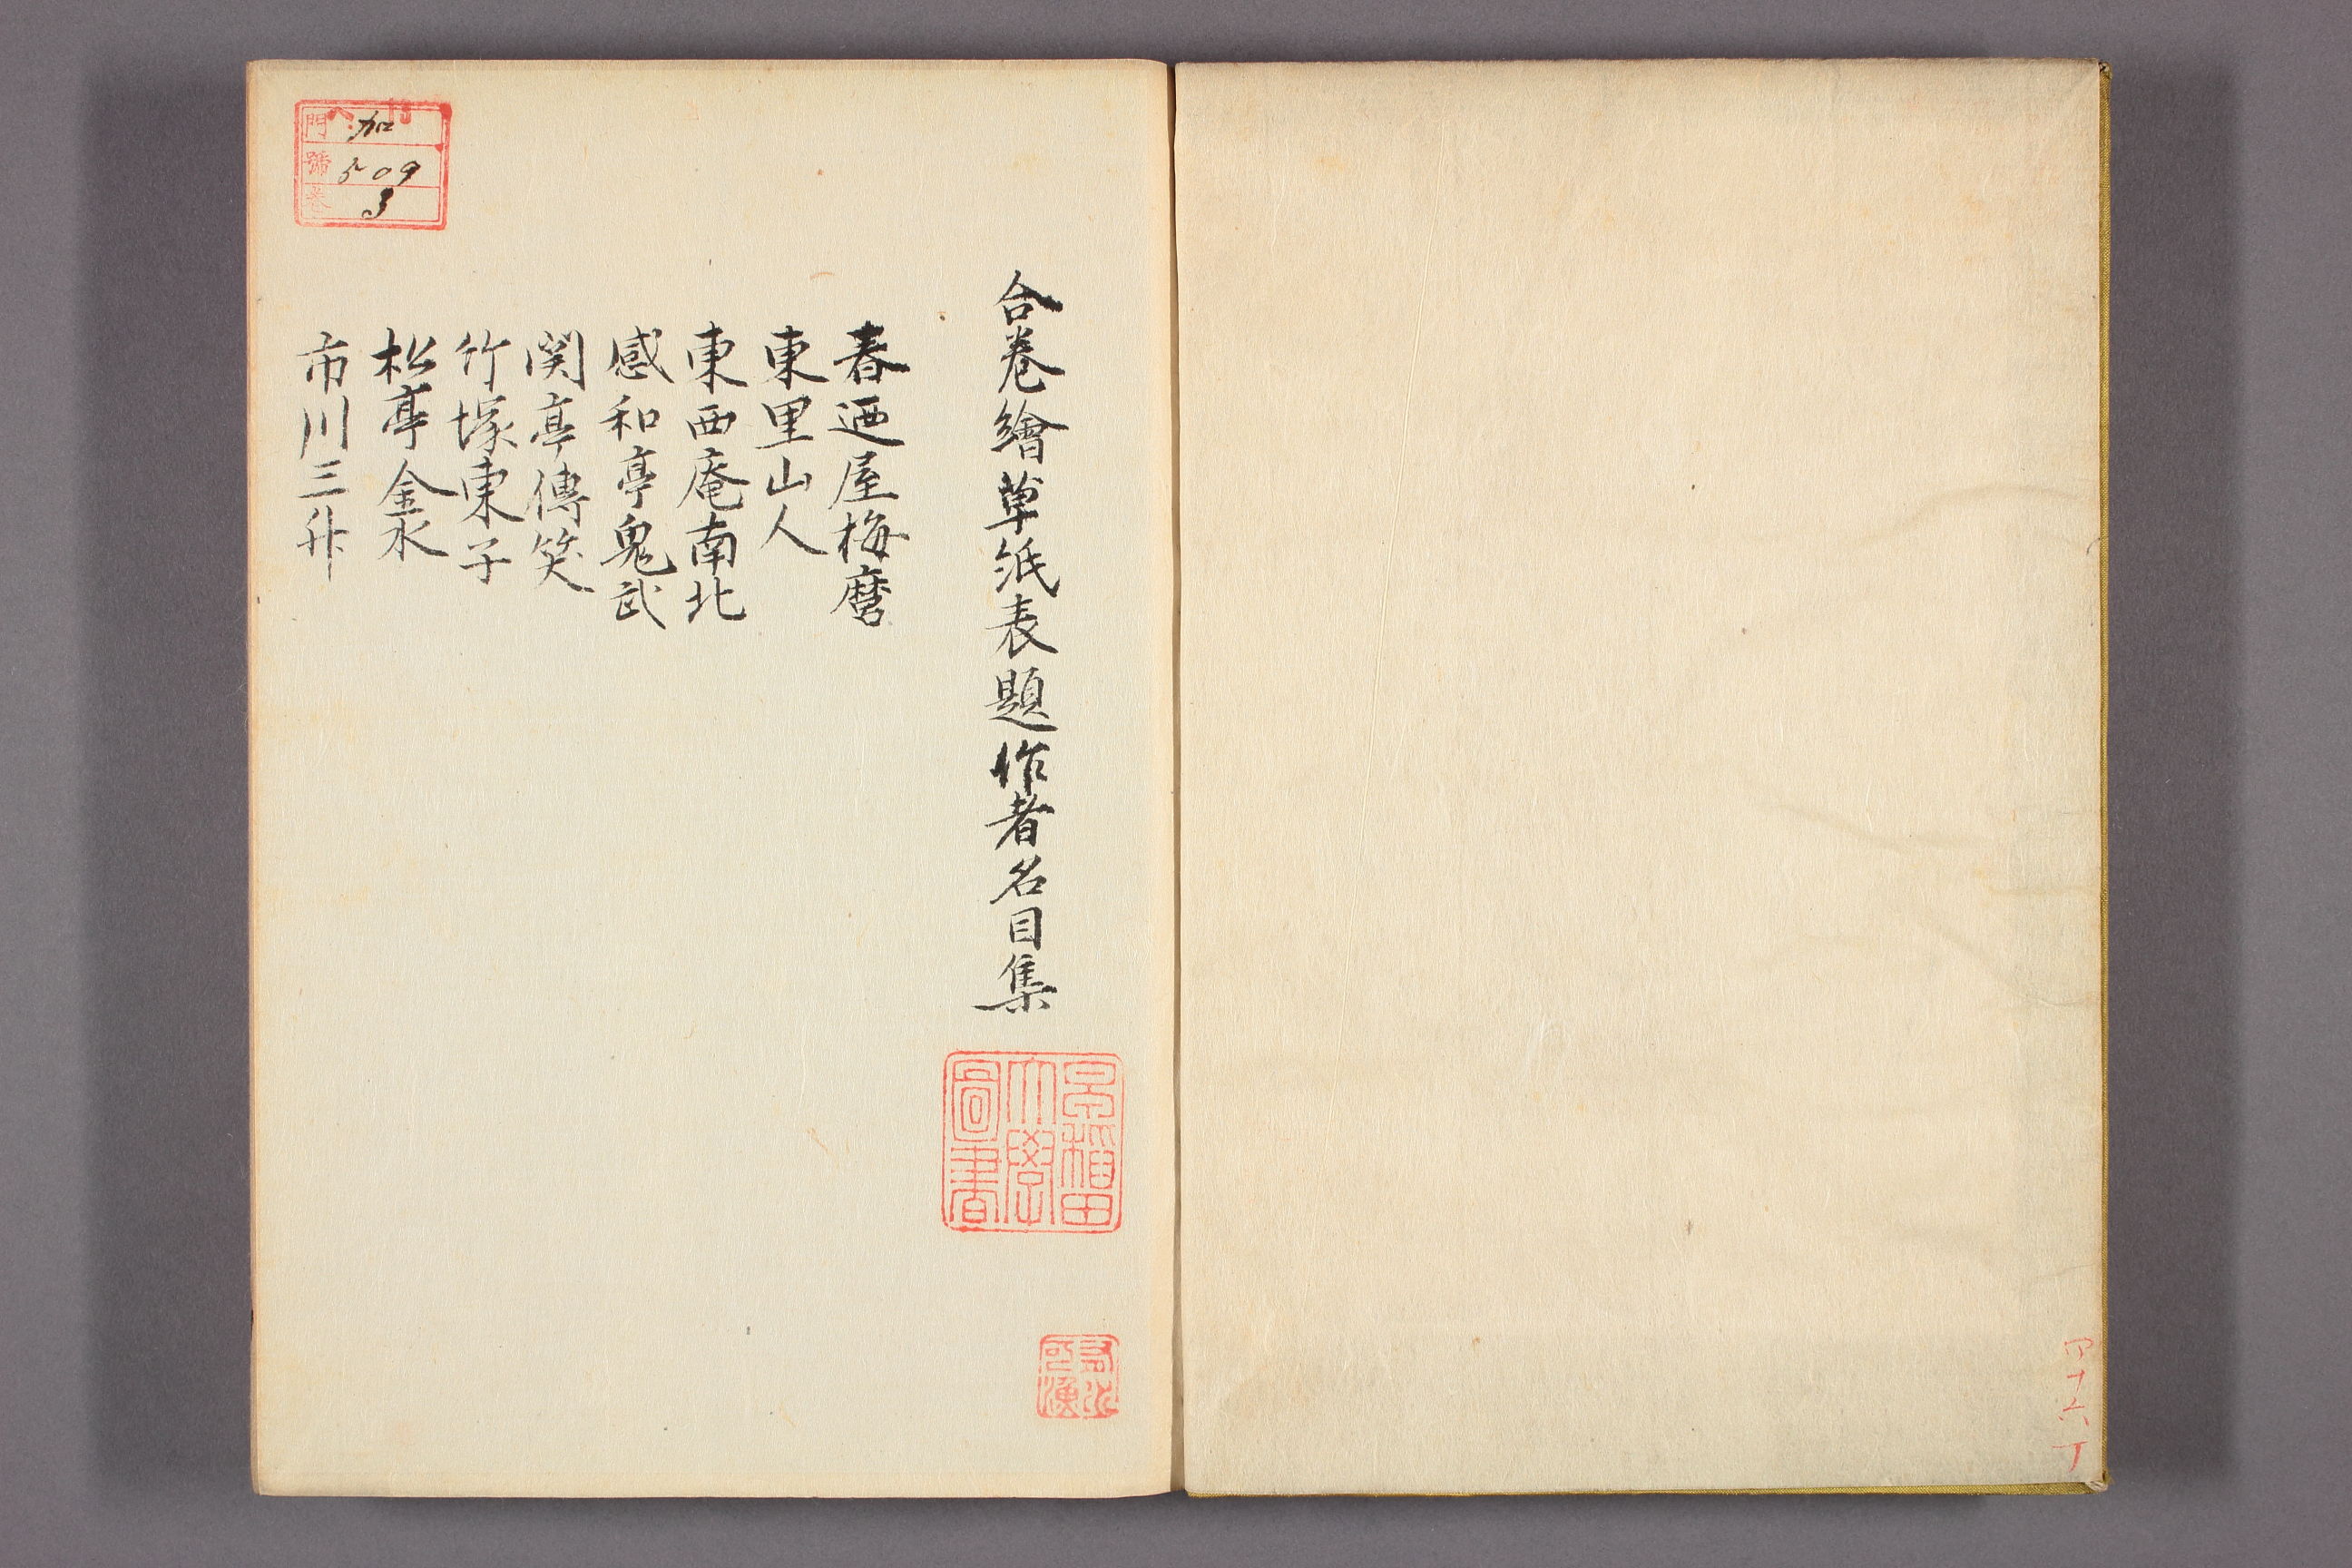 四十六丁
合卷繪草紙表題作者名目集
春廼屋梅麿
東里山人
東西庵南北
感和亭鬼武
関亭傳笑
竹塚東子
松亭金水
市川三升
門 加
號 509
卷 3
早稲田
大學
圖書